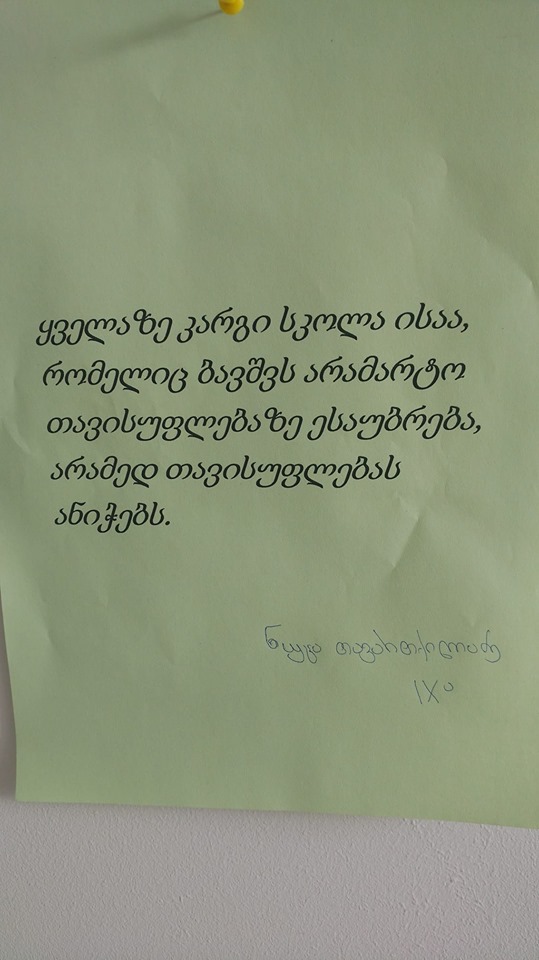 ყველაზე კარგი სკოლა ისაა,
რომელიც ბავშვს არამარტო
თავისუფლებაზე ესაუბრება,
არამედ თავისუფლებას
ანიჭებს.
IXა